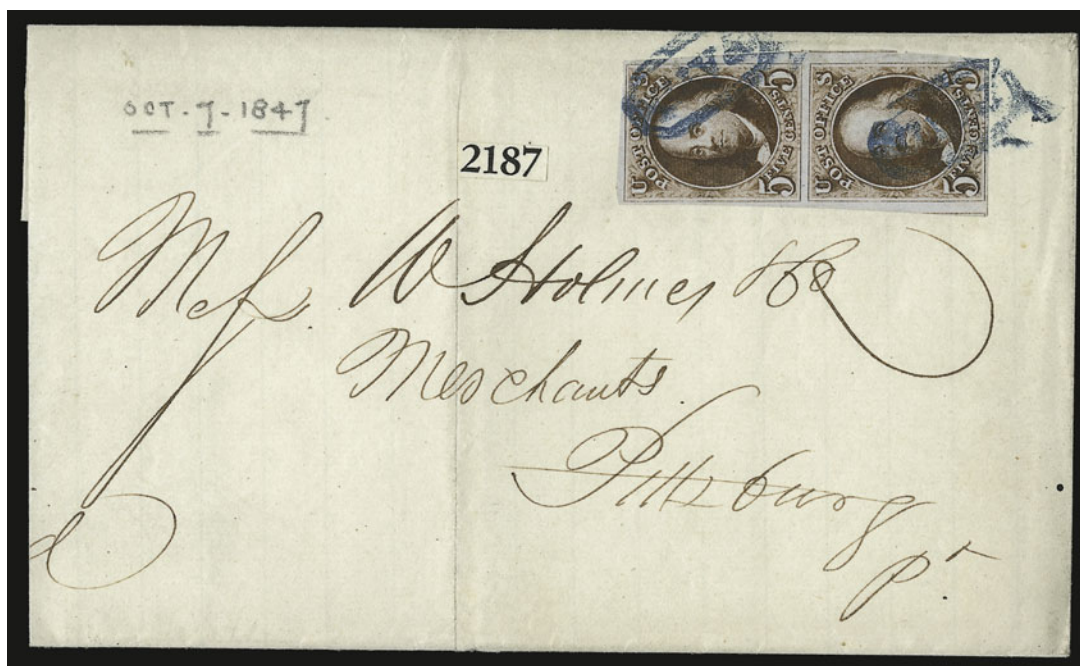 OCT. 7. 1847
2187
U S POST OFFICE FIVE CENTS 5 5
U S POST OFFICE FIVE CENTS 5 5
Mess. W Holmes & Co
Merchants
Pittsburg
Pa